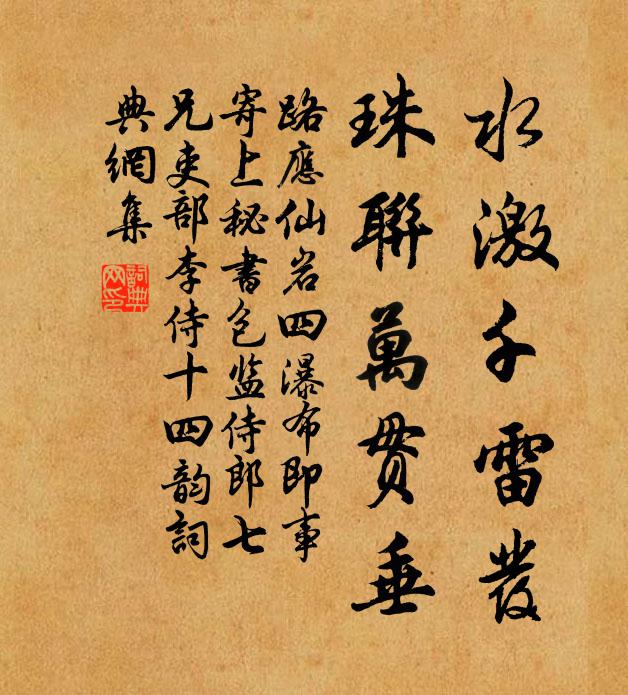 水激千雷發
珠聯萬貫垂
路應仙岩四瀑布即事
寄上秘書包监侍郎七
兄吏部李侍十四韵詞
典網集
詞典
网印